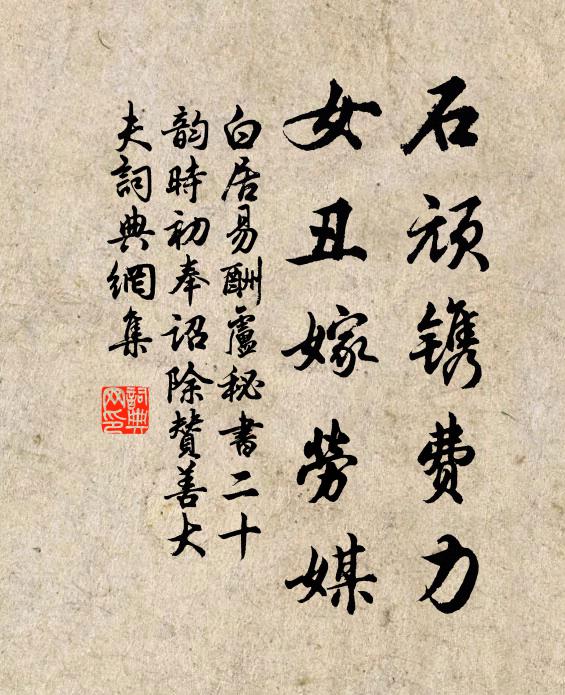 石顽镌费力
女丑嫁勞媒
白居易酬盧秘書二十
韵時初奉诏除赞善大
夫詞典網集
詞典
网印